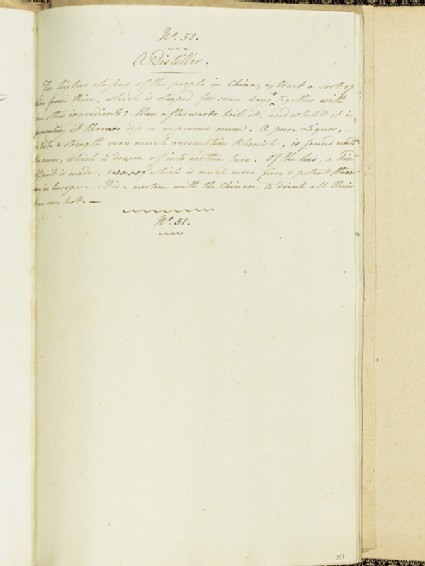 No. 51.
A Distiller.
The higher classes of the people in China, extract a sort of
from Rice, which is steeped for some days, together with
other ingredients: they afterwards boil it, and whilst it is
fermenting it throws up a vaporous scum. A pure Liquor,
in taste & strength very much resembling Rhenish, is found under
the scum, which is drawn off into another Jar. Of the lees, a
Spirit is made, which is much more fiery & potent than
in Europe. It is a custom with the Chinese to drink all their
very hot.
No. 51.